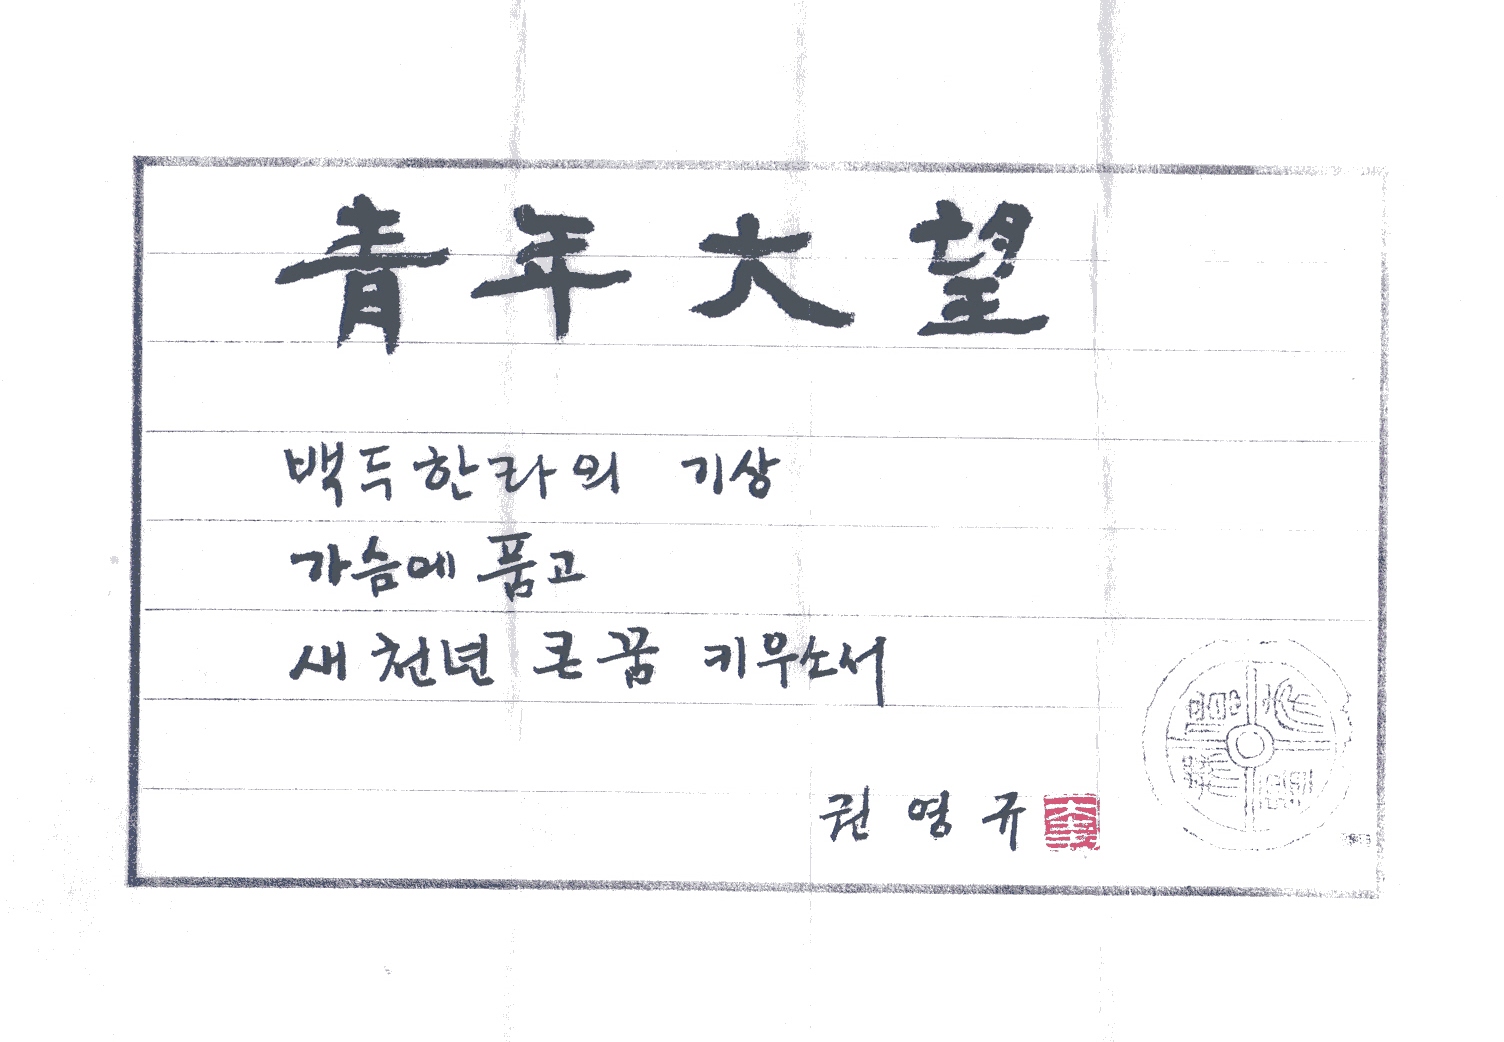 青年大望
백두한라의 기상
가슴에 품고
새천년 큰꿈 키우소서
권영규